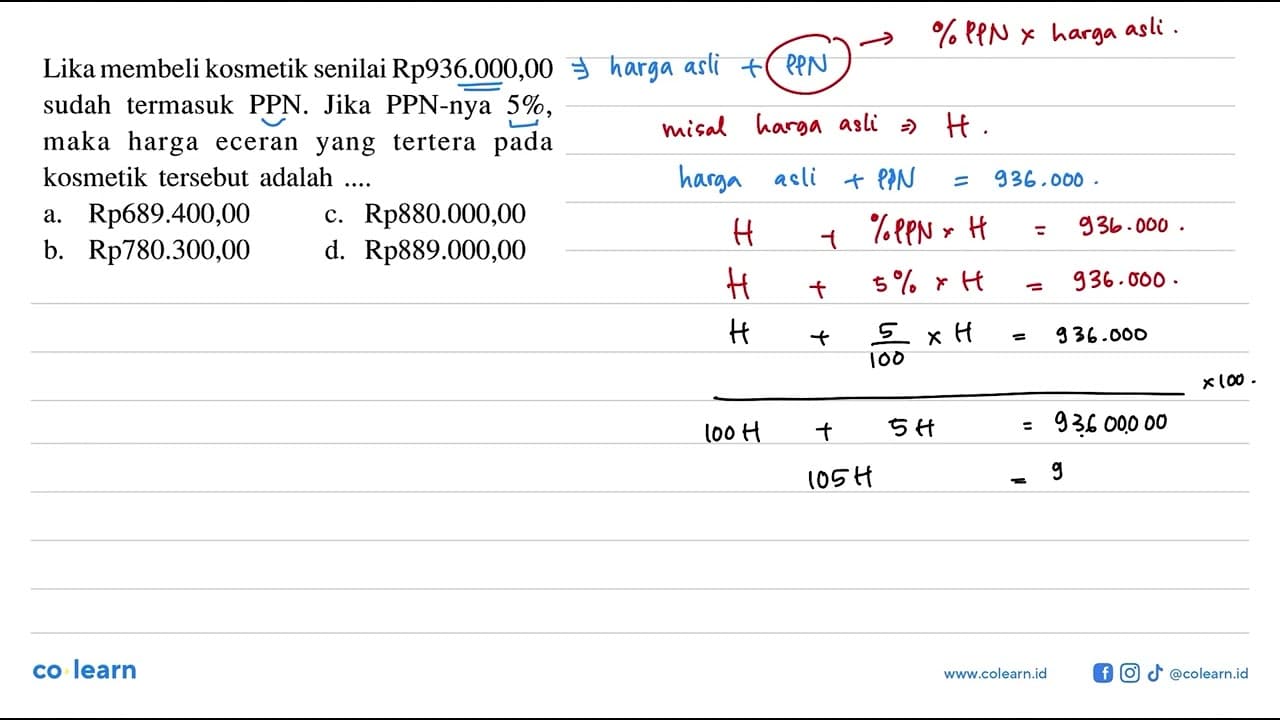 Lika membeli kosmetik senilai Rp936.000,00
sudah termasuk PPN. Jika PPN-nya 5%,
maka harga eceran yang tertera pada
kosmetik tersebut adalah ....
a. Rp689.400,00 c. Rp880.000,00
b. Rp780.300,00 d. Rp889.000,00
→ % PPN x harga asli.
⇒ harga asli + PPN
misal harga asli ⇒ H.
harga asli + PPN = 936.000.
H + % PPN x H = 936.000.
H + 5% x H = 936.000.
H + 5/100 x H = 936.000
x100.
100H + 5H = 93.600.000
105H = 9
co learn
www.colearn.id @colearn.id